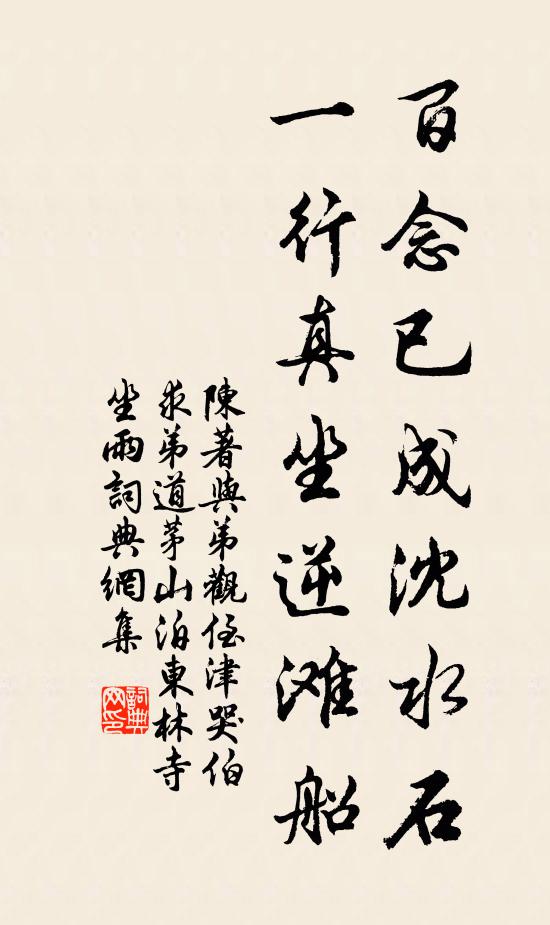 百念已成沈水石
一行真坐逆滩船
陳著與弟觀侄津哭伯
求弟道茅山泊東林寺
坐雨詞典網集
詞典网印